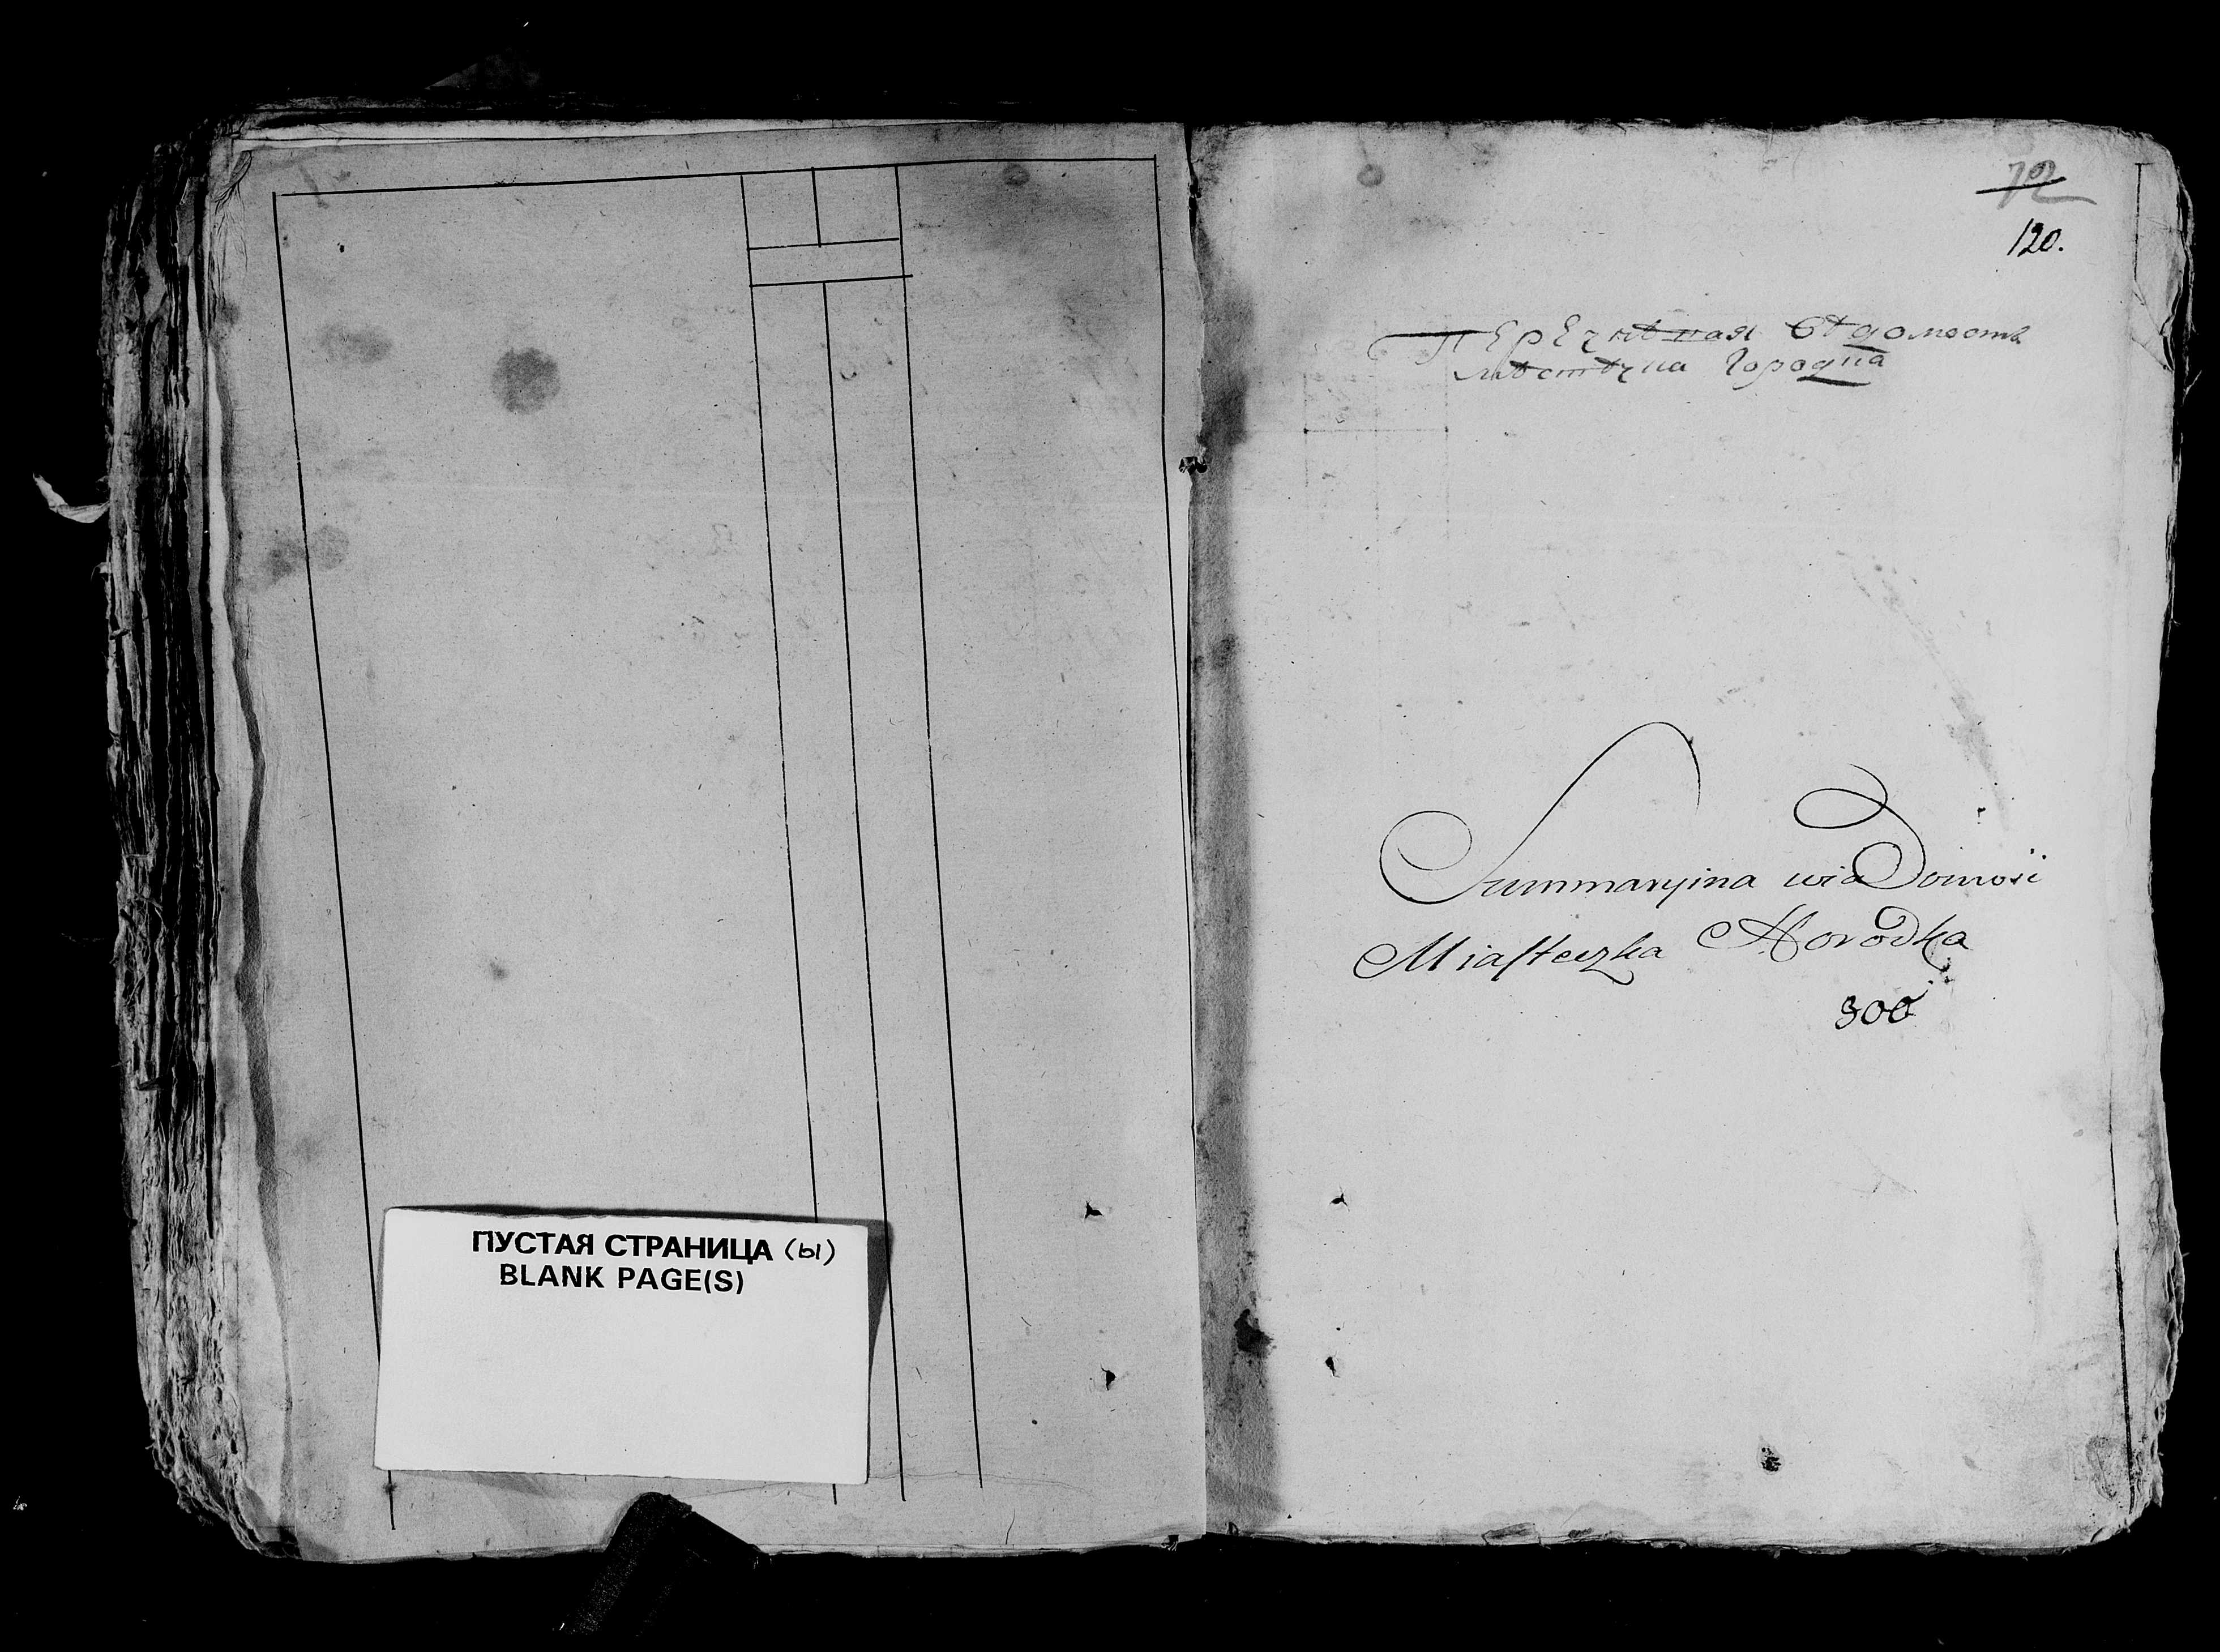 ПУСТАЯ СТРАНИЦА (Ы)
BLANK PAGE(S)
72
120.
Перечневая ведомость
местечка Городка
Summaryina wiaDomość
Miasteczka Horodka
300